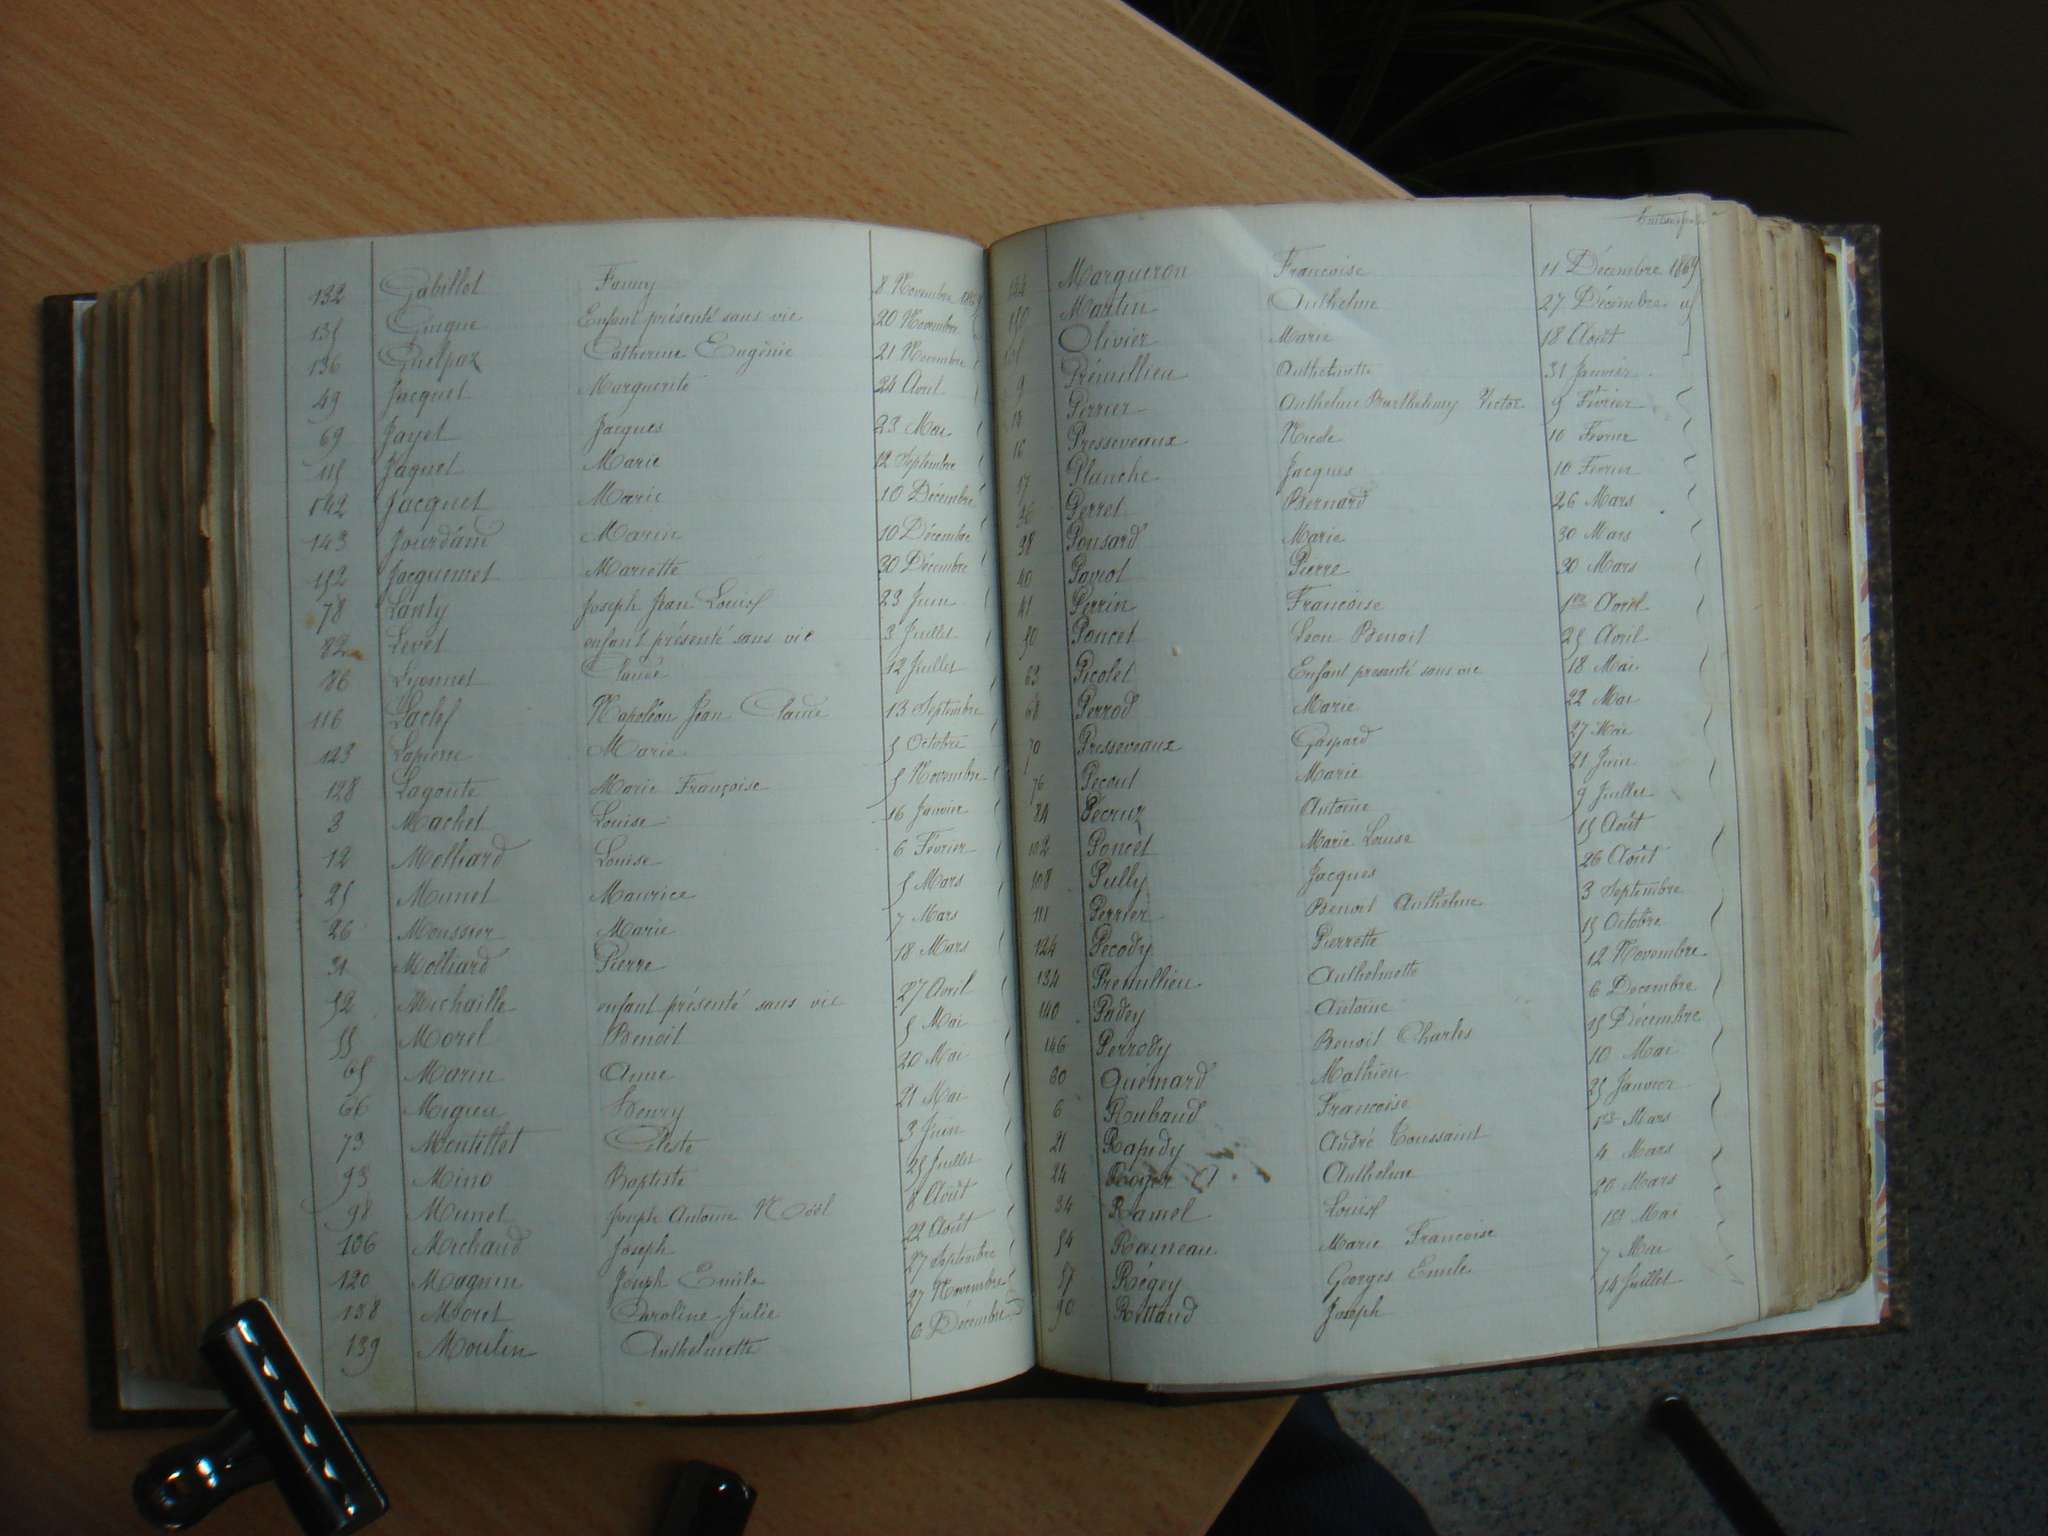 132 Gabillot Fanny 8 Novembre 1869
135 Guigue Enfant présenté sans vie 20 Novembre
136 Guelpaz Catherine Eugénie 21 Novembre
49 Jacquet Marguerite 24 Avril
69 Jayet Jacques 23 Mai
115 Jaquet Marie 12 Septembre
142 Jacquet Marie 10 Décembre
143 Jourdan Marin 10 Décembre
152 Jacquemet Mariette 30 Décembre
78 Lanty Joseph Jean Louis 23 Juin
82 Levet enfant présenté sans vie 3 Juillet
86 Lyonnet Claude 12 Juillet
116 Napoléon Jean Claude 13 Septembre
123 Lapierre Marie 5 Octobre
128 Lagoute Marie Françoise 5 Novembre
3 Machet Louise 16 Janvier
12 Molliard Louise 6 Février
25 Munet Maurice 5 Mars
26 Moussier Marie 7 Mars
31 Molliard Pierre 18 Mars
52 Michaille enfant présenté sans vie 27 Avril
55 Morel Benoit 5 Mai
65 Marin Anne 20 Mai
66 Migieu Henry 21 Mai
73 Montillet Céleste 3 Juin
93 Mino Baptiste 25 Juillet
98 Munet Joseph Antoine Noël 8 Août
106 Michaud Joseph 22 Août
120 Magnin Joseph Emile 27 Septembre
138 Moret Caroline Julie 27 Novembre
139 Moulin Anthelmette 6 Décembre
144 Margueron Francoise 11 Décembre 1869
150 Martin Anthelme 27 Décembre
Olivier Marie 18 Août
9 Prémillieu Anthelmette 31 Janvier
15 Perrier Anthelme Barthelemy Victor 9 Février
16 Presseveaux Nicole 10 Fevrier
17 Planche Jacques 10 Fevrier
36 Perret Bernard 26 Mars
38 Ponsard Marie 30 Mars
40 Paviot Pierre 30 Mars
41 Perrin Francoise 1er Avril
50 Poncet Leon Benoit 25 Avril
63 Picolet Enfant presenté sans vie 18 Mai
68 Perrod Marie 22 Mai
70 Presseveaux Gaspard 27 Mai
76 Pecout Marie 21 Juin
84 Antoine 9 Juillet
102 Poncet Marie Louise 15 Août
108 Pully Jacques 26 Août
111 Perrier Benoit Anthelme 3 Septembre
124 Pecody Pierrette 15 Octobre
134 Premillieu Anthelmette 12 Novembre
140 Padey Antoine 6 Decembre
146 Perrody Benoit Charles 15 Décembre
60 Quémard Mathieu 10 Mai
6 Rubaud Francoise 25 Janvier
21 Rapidy André Toussaint 1er Mars
24 Royer Anthelme 4 Mars
34 Ramel Louis 20 Mars
54 Raineau Marie Francoise 1er Mai
57 Régey Georges Emile 7 Mai
90 Rittaud Joseph 14 Juillet